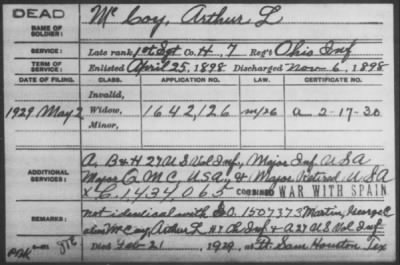 DEAD
NAME OF SOLDIER:
Mc Coy, Arthur L
SERVICE:
Late rank 1st Sgt Co. H, 7 Reg't Ohio Inf
TERM OF SERVICE:
Enlisted April 25, 1898 Discharged Nov 6, 1898
DATE OF FILING. CLASS. APPLICATION NO. LAW. CERTIFICATE NO.
Invalid,
1929 May 2 Widow, 1642,126 a 2-17-30
Minor,
ADDITIONAL SERVICES:
A, B & H 27 U S Vol Inf, Major Inf U S A
Major Q M C, U S A, & Major Retired U S A
XC. 1,434,065 COMBINED WAR WITH SPAIN
REMARKS:
not identical with S.O. 1507373 Martin, George C
alias Mc Coy, Arthur L H 7 O Inf & A 27 U S Vol Inf
Died Feb 21, 1929, at Ft. Sam Houston Tex